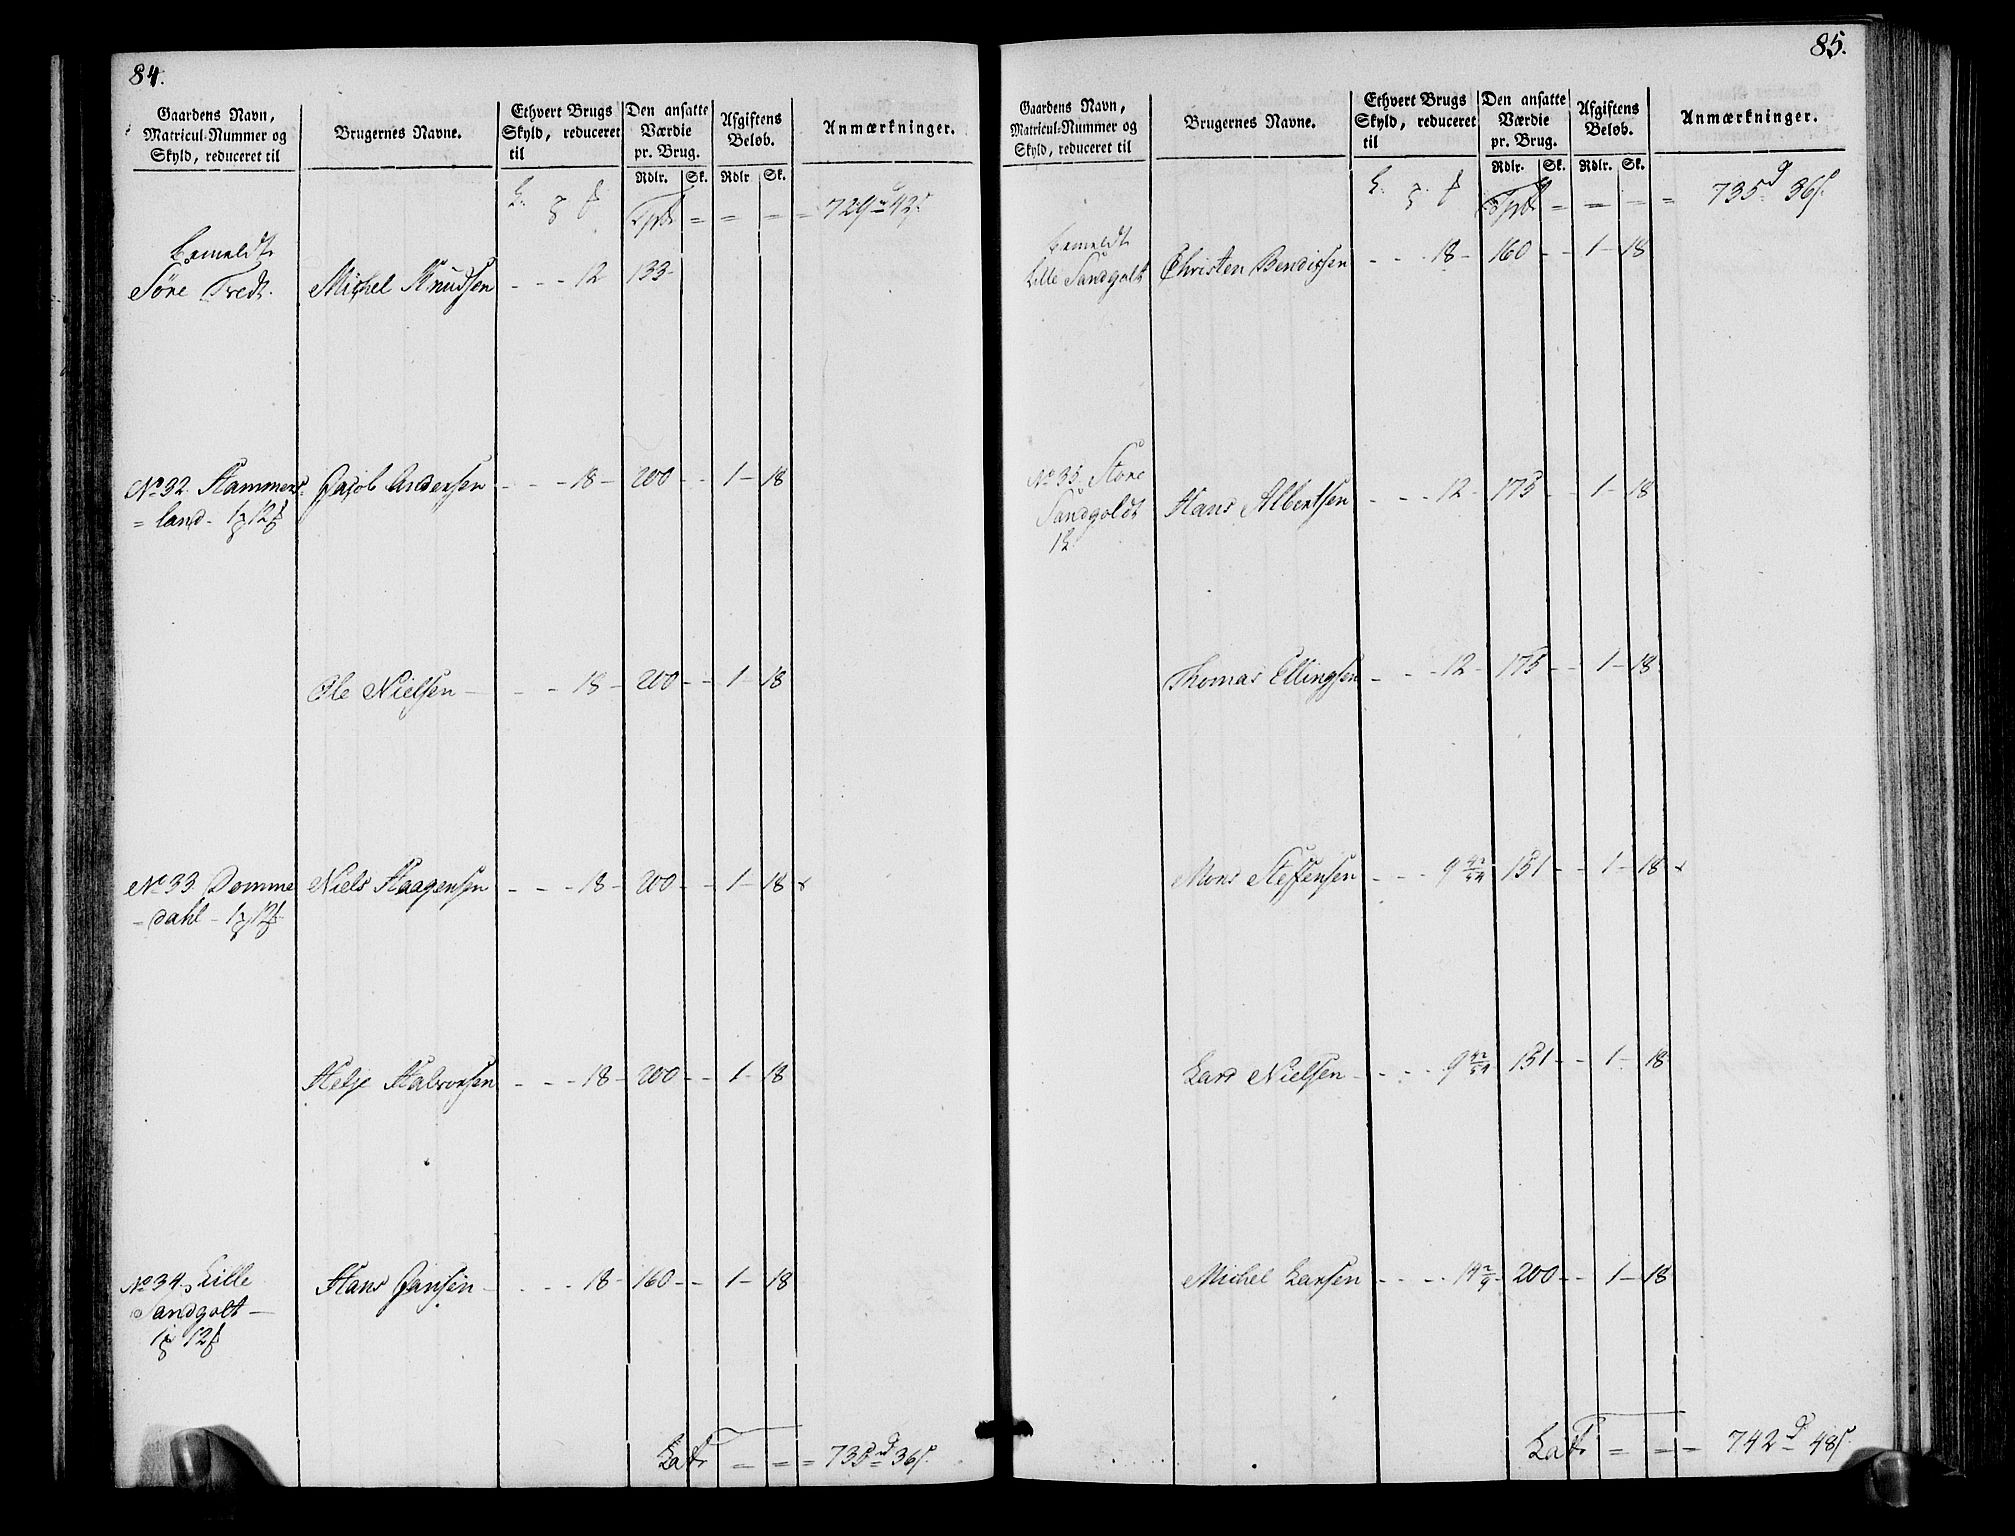 84.
Gaardens Navn, Matricul-Nummer og Skyld, reduceret til
Brugernes Navne.
Ethvert Brugs Skyld, reduceret til
Den ansatte Værdie pr. Brug.
Afgiftens Beløb.
Anmærkninger.
Rdlr. Sk. Rdlr Sk.
= = = = 729 42
bemeldt
Søre Tredt. Michel Knudsen - - - 12 133-
No 32. Hammers Jacob Andersen - - - 18 - 200 - - 1 - 18
= land - 12
Ole Nielsen - - - 18 - 200 - - 1 - 18
No 33. Domme Niels Haagensen - - - 18 - 200 - - 1 - 18
- dahl - 12
Helje Halvorsen - - - 18 - 200 - - 1 - 18
No 34. Lille Hans Jansen - - - 18 - 160 - - 1 - 18
Sandgolt -
12
Latr = = = 735 36
85.
Gaardens Navn, Matricul-Nummer og Skyld, reduceret til
Brugernes Navne.
Ethvert Brugs Skyld, reduceret til
Den ansatte Værdie pr. Brug.
Afgiftens Beløb.
Anmærkninger.
Rdlr. Sk. Rdlr. Sk.
= = - = 735 36
bemeldt
Lille Sandgolt Christen Bendixsen - - - 18 - 160 - - 1 - 18
No 35. Store
Sandgoldt Hans Albertsen - - - 12 - 175 - - 1 - 18
Thomas Ellingsen - - - 12 - 175 - - 1 - 18
Mons Steffensen - - - 9 151 - - 1 - 18
Lars Nielsen - - - 9 151 - - 1 - 18
Michel Larsen - - - 14 2/9 - 200 - - 1 - 18
Latr = = = 742 48